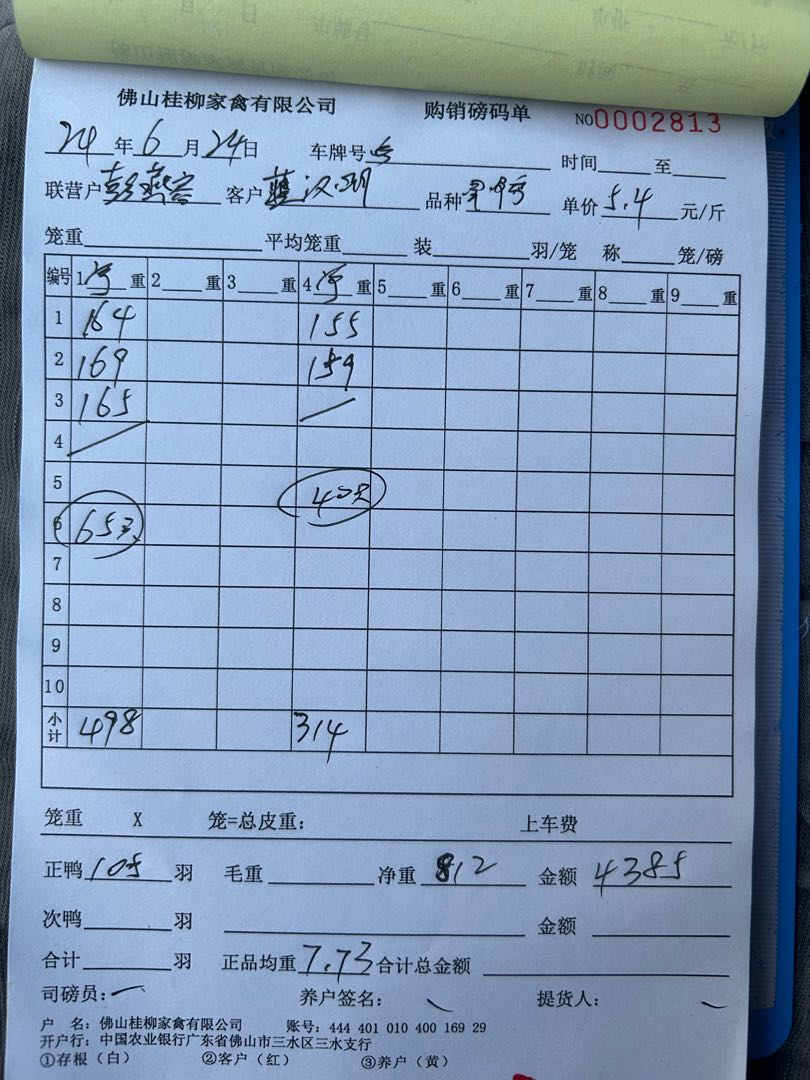 佛山桂柳家禽有限公司 购销磅码单 NO0002813
24年6月24日 车牌号 时间 至
联营户 彭燕容 客户 蓝汉明 品种 单价 5.4 元/斤
笼重 平均笼重 装 羽/笼 称 笼/磅
编号 1净重 2 重 3 重 4净重 5 重 6 重 7 重 8 重 9 重
1 164 155
2 169 159
3 165
4
5 40只
6 65只
7
8
9
10
小计 498 314
笼重 X 笼=总皮重: 上车费
正鸭 105 羽 毛重 净重 812 金额 4385
次鸭 羽 金额
合计 羽 正品均重 7.73 合计总金额
司磅员: 养户签名: 提货人:
户 名: 佛山桂柳家禽有限公司 账号: 444 401 010 400 169 29
开户行: 中国农业银行广东省佛山市三水区三水支行
①存根(白) ②客户(红) ③养户(黄)